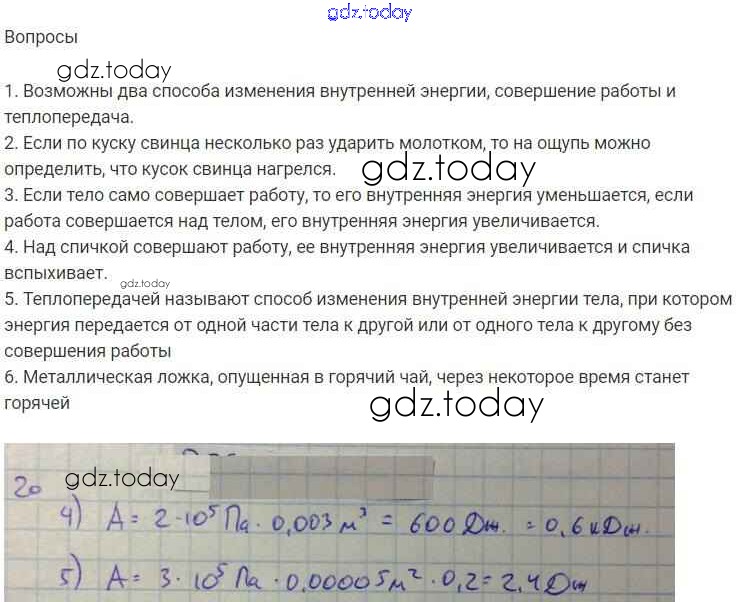 gdz.today
Вопросы
gdz.today
1. Возможны два способа изменения внутренней энергии, совершение работы и
теплопередача.
2. Если по куску свинца несколько раз ударить молотком, то на ощупь можно
определить, что кусок свинца нагрелся.
gdz.today
3. Если тело само совершает работу, то его внутренняя энергия уменьшается, если
работа совершается над телом, его внутренняя энергия увеличивается.
4. Над спичкой совершают работу, ее внутренняя энергия увеличивается и спичка
вспыхивает.
gdz.today
5. Теплопередачей называют способ изменения внутренней энергии тела, при котором
энергия передается от одной части тела к другой или от одного тела к другому без
совершения работы
6. Металлическая ложка, опущенная в горячий чай, через некоторое время станет
горячей
gdz.today
gdz.today
20
4) A = 2·10⁵ Па · 0,003 м³ = 600 Дж. = 0,6 кДж.
5) A = 3·10⁵ Па · 0,00005 м² · 0,2 = 2,4 Дж